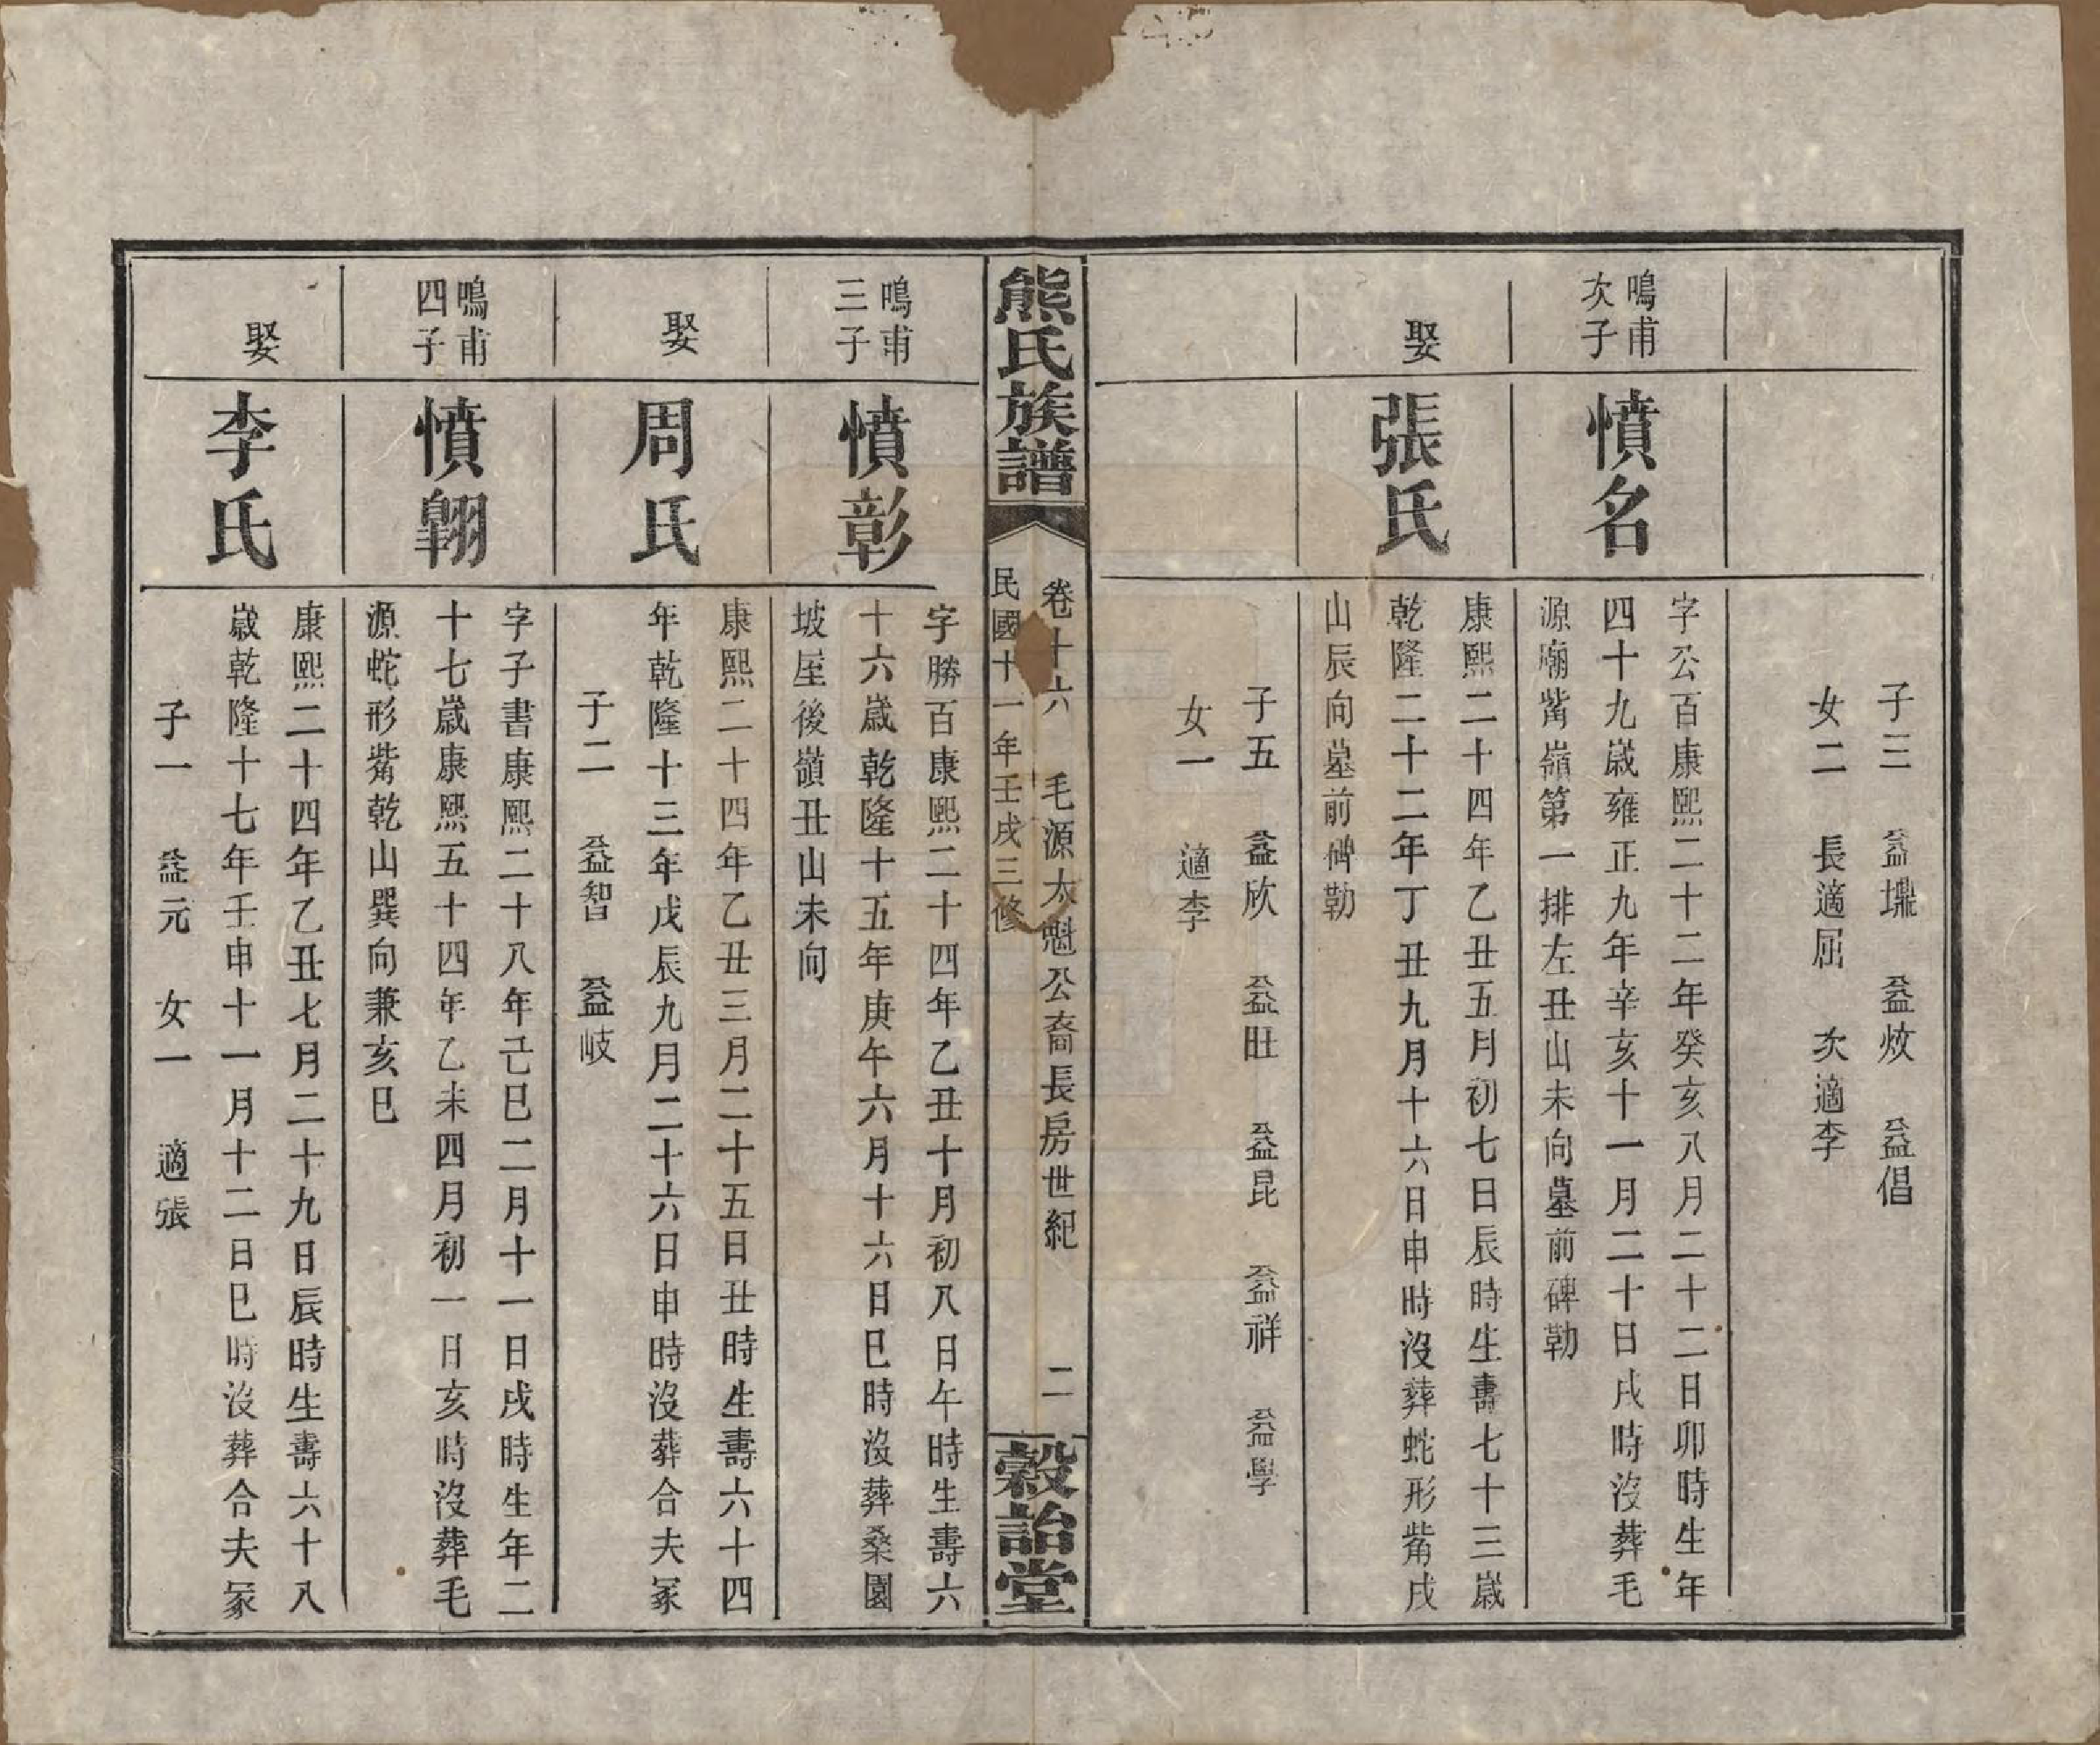 子三　益㙓　益炆　益倡
女二　長適屈　次適李
鳴甫
次子
憤名
字公百康熙二十二年癸亥八月二十二日卯時生年
四十九歲雍正九年辛亥十一月二十日戌時沒葬毛
源廟觜嶺第一排左丑山未向墓前碑勒
娶
張氏
康熙二十四年乙丑五月初七日辰時生壽七十三歲
乾隆二十二年丁丑九月十六日申時沒葬蛇形觜戌
山辰向墓前碑勒
子五　益欣　益旺　益昆　益祥　益學
女一　適李
熊氏族譜
卷十六　毛源太魁公裔長房世紀　二
民國十一年壬戌三修
穀詒堂
鳴甫
三子
憤彰
字勝百康熙二十四年乙丑十月初八日午時生壽六
十六歲乾隆十五年庚午六月十六日巳時沒葬桑園
坡屋後嶺丑山未向
娶
周氏
康熙二十四年乙丑三月二十五日丑時生壽六十四
年乾隆十三年戊辰九月二十六日申時沒葬合夫冢
子二　益智　益岐
鳴甫
四子
憤翺
字子書康熙二十八年己巳二月十一日戌時生年二
十七歲康熙五十四年乙未四月初一日亥時沒葬毛
源蛇形觜乾山巽向兼亥巳
娶
李氏
康熙二十四年乙丑七月二十九日辰時生壽六十八
歲乾隆十七年壬申十一月十二日巳時沒葬合夫冢
子一　益元　女一　適張